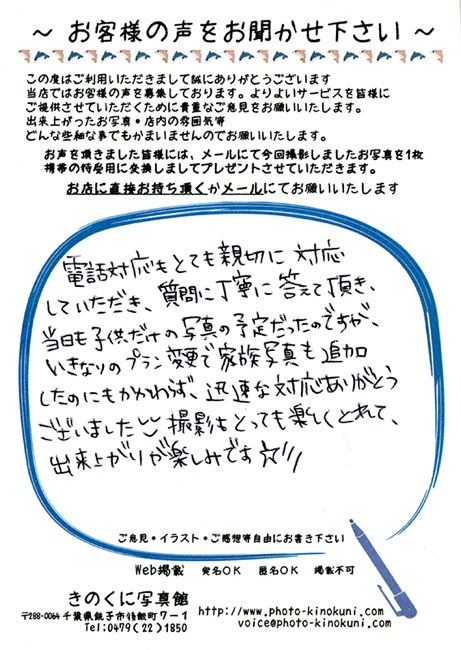 ～ お客様の声をお聞かせ下さい ～
この度はご利用いただきまして誠にありがとうございます
当店ではお客様の声を募集しております。よりよいサービスを皆様に
ご提供させていただくために貴重なご意見をお願いいたします。
出来上がったお写真・店内の雰囲気等
どんな些細な事でもかまいませんのでお願いします。
お声を頂きました皆様には、メールにて今回撮影しましたお写真を1枚
携帯の待受用に交換しましてプレゼントさせていただきます。
お店に直接お持ち頂くかメールにてお願いいたします
電話対応もとても親切に対応
していただき、質問に丁寧に答えて頂き、
当日も子供だけの写真の予定だったのですが、
いきなりのプラン変更で家族写真も追加
したのにもかかわらず、迅速な対応ありがとう
ございました 撮影もとっても楽しくとれて、
出来上がりが楽しみです☆彡
ご意見・イラスト・ご感想等自由にお書き下さい
Web掲載 実名OK 匿名OK 掲載不可
きのくに写真館
〒288-0064 千葉県銚子市後飯町7-1
Tel:0479(22)1850
http://www.photo-kinokuni.com/
voice@photo-kinokuni.com